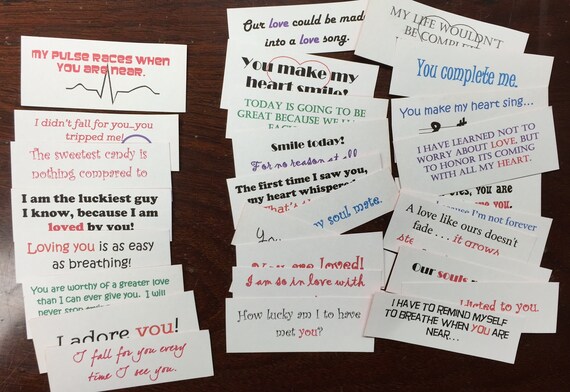 MY PULSE RACES WHEN
YOU ARE NEAR.
I didn't fall for you...you
tripped me!
The sweetest candy is
nothing compared to
I am the luckiest guy
I know, because I am
loved by you!
Loving you is as easy
as breathing!
You are worthy of a greater love
than I can ever give you. I will
never stop
I adore you!
I fall for you every
time I see you.
Our love could be made
into a love song.
You make my
heart smile!
TODAY IS GOING TO BE
GREAT BECAUSE WE
Smile today!
For no reason at all
The first time I saw you,
my heart whispered
my soul mate.
loved!
I am so in love with
How lucky am I to have
met you?
MY LIFE WOULDN'T
BE COMPLETE
You complete me.
You make my heart sing...
I HAVE LEARNED NOT TO
WORRY ABOUT LOVE, BUT
TO HONOR ITS COMING
WITH ALL MY HEART.
you are
because I'm not forever
A love like ours doesn't
fade . . . it grows
Our souls
to you.
I HAVE TO REMIND MYSELF
TO BREATHE WHEN YOU ARE
NEAR...